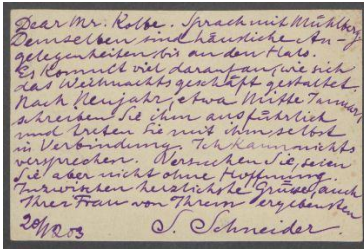 Dear Mr. Kolbe. Sprach mit Mühlberg
Demselben sind häusliche An-
gelegenheiten bis an den Hals.
Es kommt viel darauf an, wie sich
das Weihnachtsgeschäft gestaltet.
Nach Neujahr, etwa Mitte Januar
schreiben Sie ihm ausführlich
und treten Sie mit ihm selbst
in Verbindung. Ich kann nichts
versprechen. Versuchen Sie, seien
Sie aber nicht ohne Hoffnung.
Inzwischen herzlichste Grüsse, auch
Ihrer Frau von Ihrem ergebensten
20/12 03 S. Schneider.